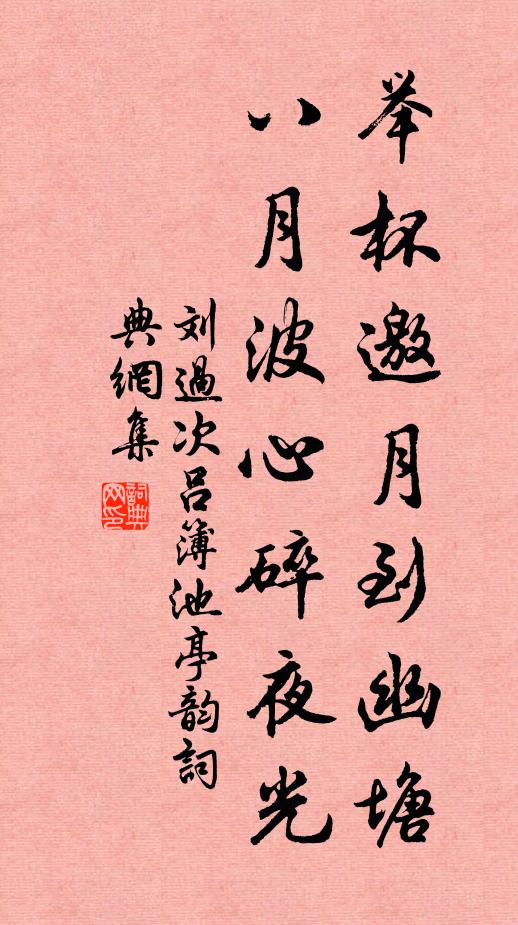 举杯邀月到幽塘
八月波心碎夜光
刘過次吕簿池亭韵詞
典網集
詞典网印